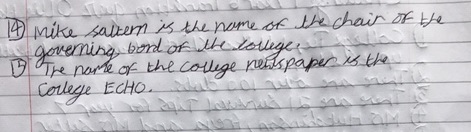 14 Mike saltern is the name of the chair of the
governing bord of the college.
15 The name of the college newspaper is the
College ECHO.